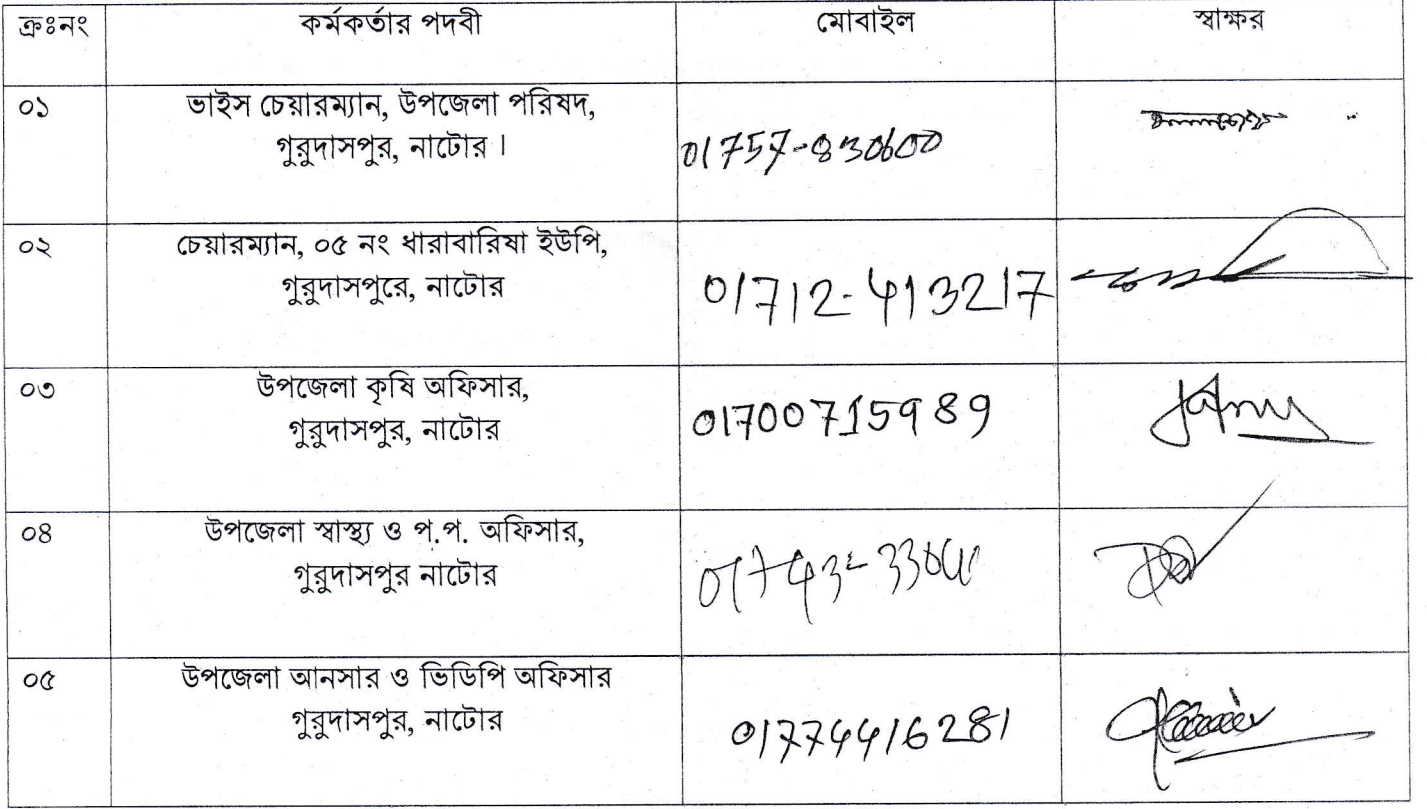 ক্রঃনং কর্মকর্তার পদবী মোবাইল স্বাক্ষর
০১ ভাইস চেয়ারম্যান, উপজেলা পরিষদ,
গুরুদাসপুর, নাটোর । 01757-830600
০২ চেয়ারম্যান, ০৫ নং ধারাবারিষা ইউপি,
গুরুদাসপুরে, নাটোর 01712-413217
০৩ উপজেলা কৃষি অফিসার,
গুরুদাসপুর, নাটোর 01700715989
০৪ উপজেলা স্বাস্থ্য ও প.প. অফিসার,
গুরুদাসপুর নাটোর
০৫ উপজেলা আনসার ও ভিডিপি অফিসার
গুরুদাসপুর, নাটোর 01774416281